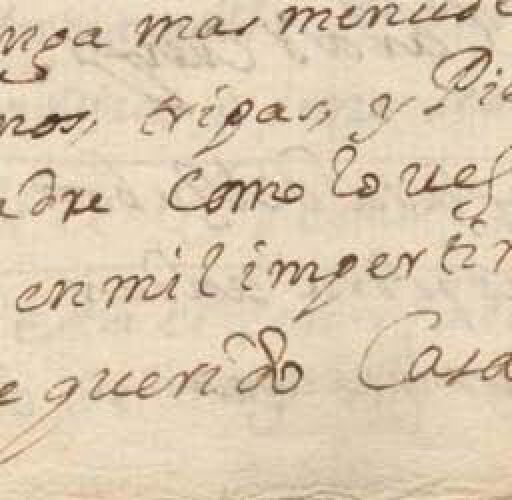 nga mas menud
nos, tripas, y Pi
adre Como lo ues
en mil impertin
e querido Casa